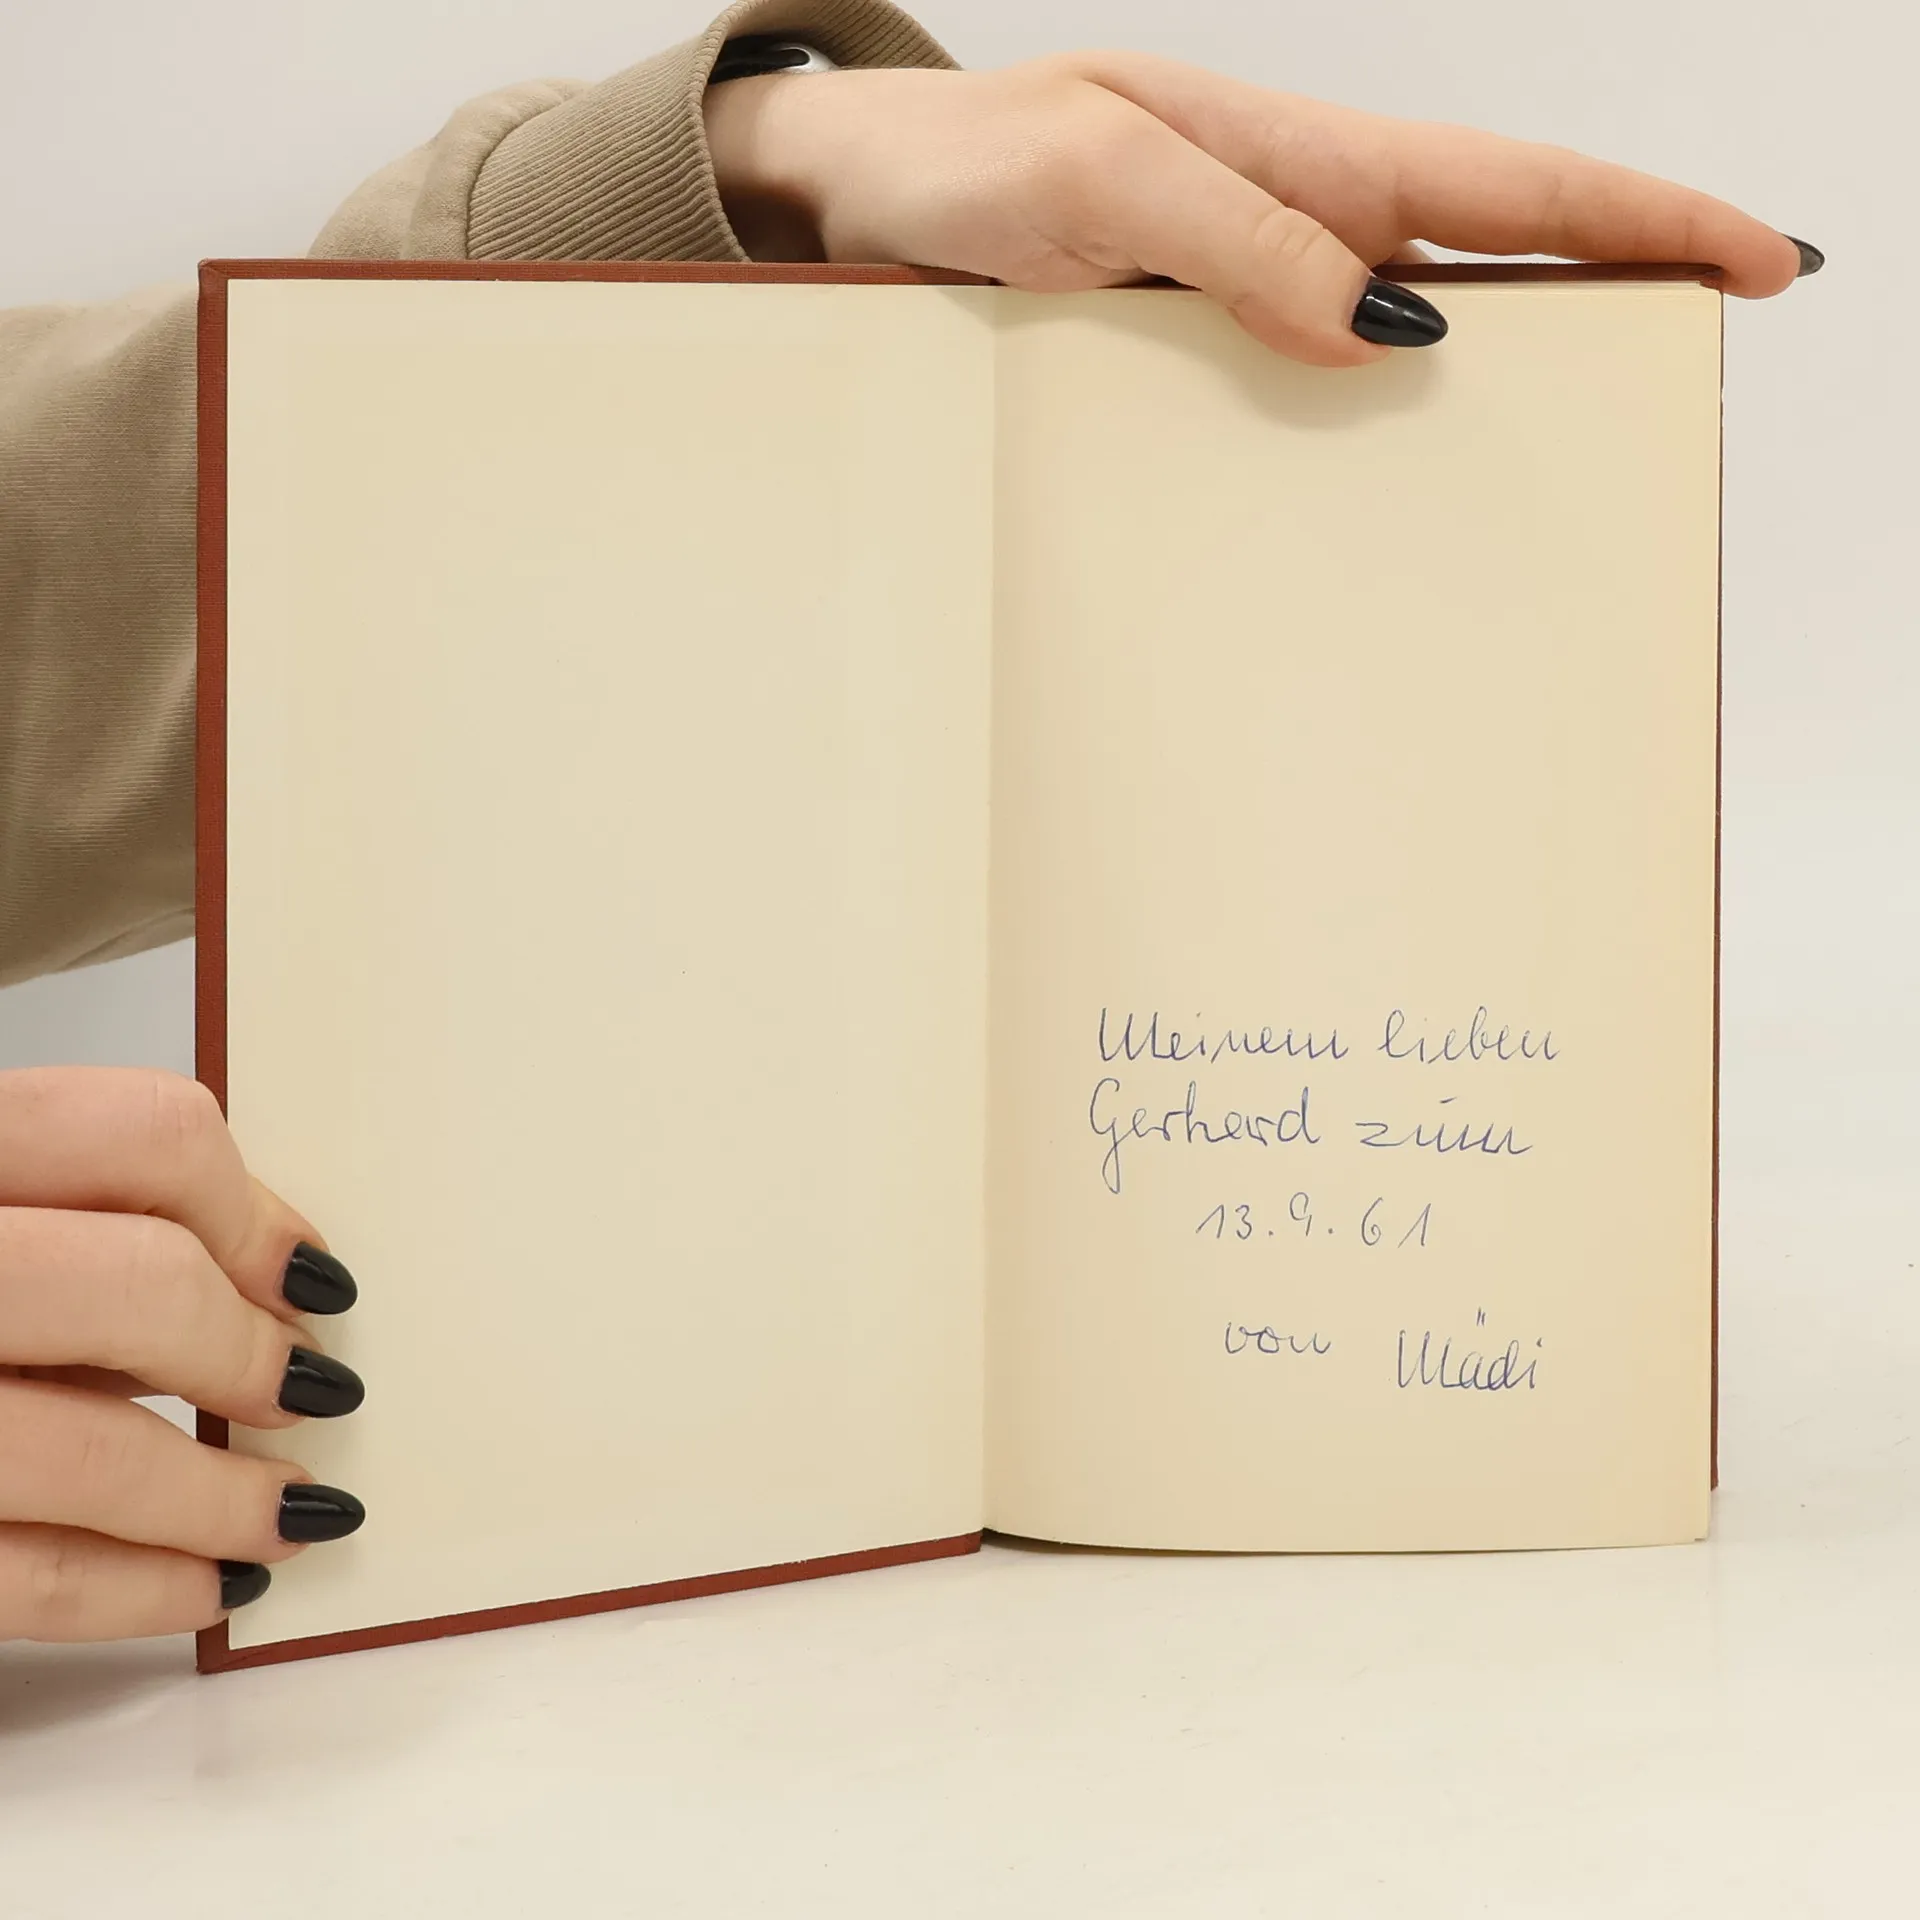 Meinem lieben
Gerhard zum
13.9.61
von Mädi